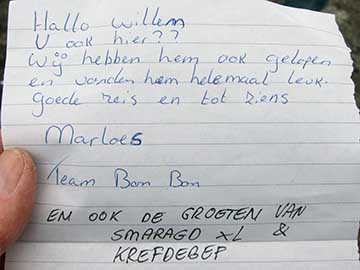 Hallo willem
U ook hier??
Wij hebben hem ook gelopen
en vonden hem helemaal leuk.
goede reis en tot ziens
Marloes
Team Bon Bon
EN OOK DE GROETEN VAN
SMARAGD XL &
KREFDEBEF